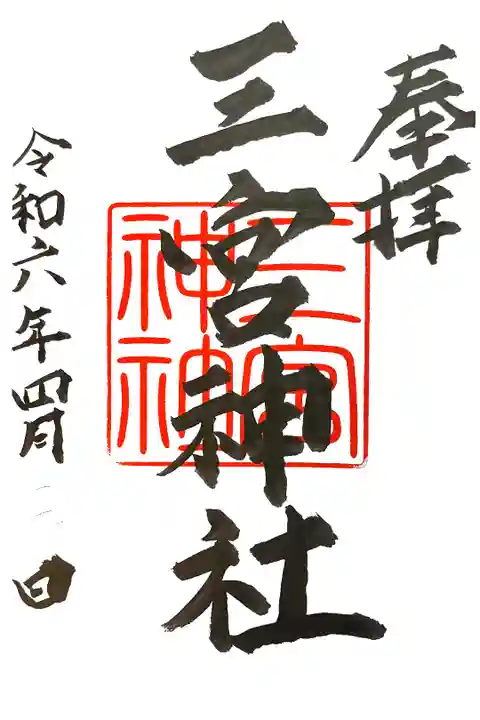 奉拝
三宮神社
三宮神社
令和六年四月 日